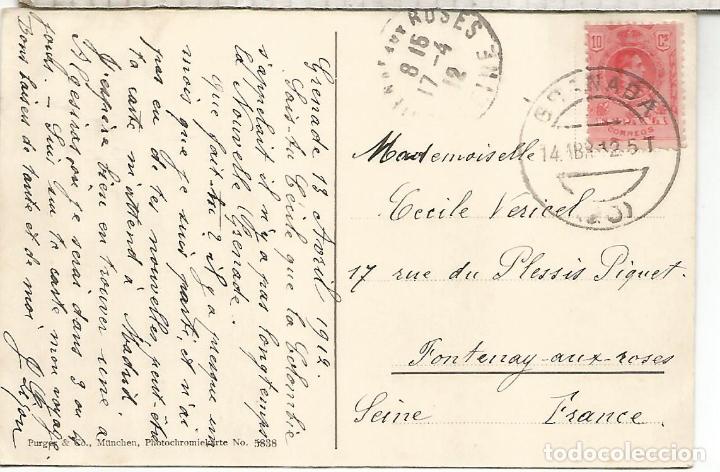 Grenade 13 Avril 1912.
Sais-tu Cécile que la Colombie
s'appelait il n'y a pas longtemps
la Nouvelle Grenade.
Que fait-tu? Il y a presque un
mois que je suis parti, et n'ai
pas eu de tes nouvelles, peut-être
ta carte m'attend à Madrid.
J'espère bien en trouver une à
Algésiras où je serai dans 3 ou 4
jours. - Suis sur ta carte mon voyage.
Bons baisers de tante et de moi.
Purger & Co., München, Photochromiekarte No. 5838
ROSES
8 15
17-4
12
SEINE
10 Cs
CORREOS
GRANADA
14.ABR.12.5.T
Mademoiselle
Cecile Vericel
17 rue du Plessis Piquet.
Fontenay-aux-roses
Seine France.
todocoleccion